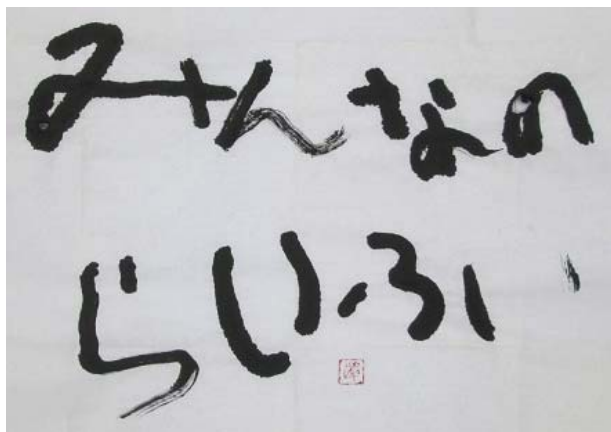 みんなの
らいふ